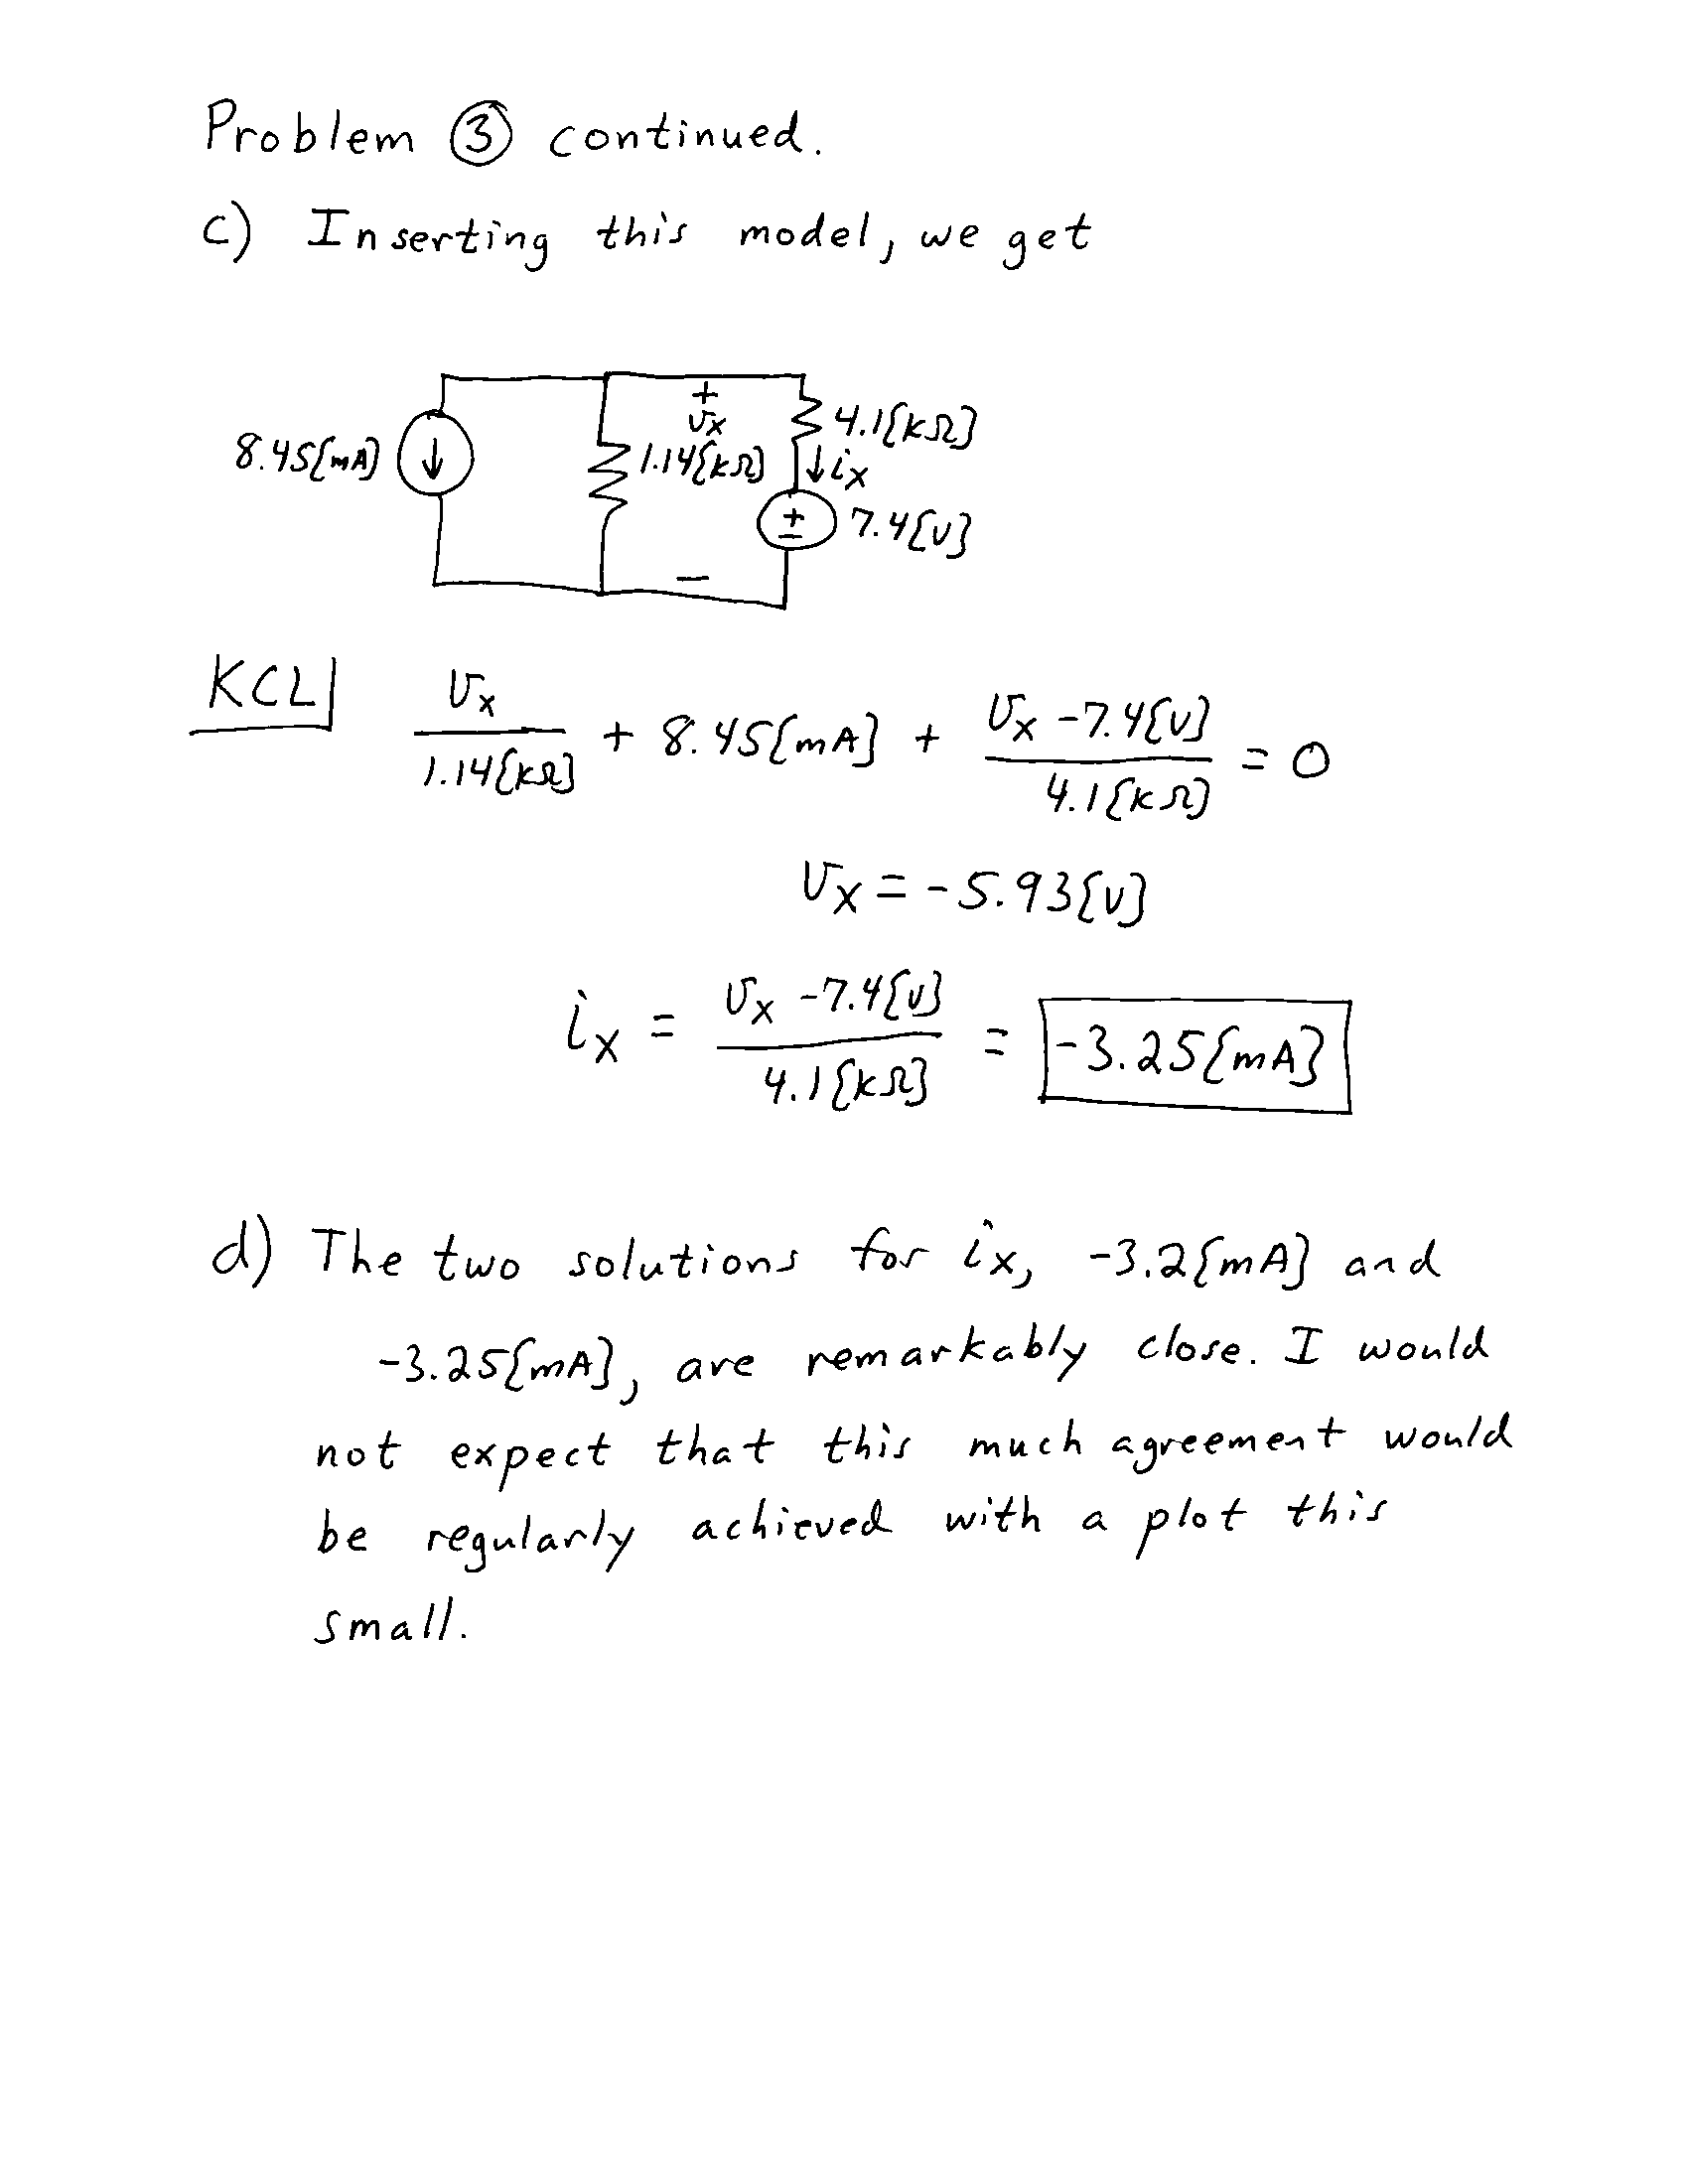 Problem ③ continued.
c) Inserting this model, we get
+
vx
4.1{kΩ}
8.45{mA}
↓
1.14{kΩ}
↓ix
+
-
7.4{v}
-
KCL vx/1.14{kΩ} + 8.45{mA} + vx -7.4{v}/4.1{kΩ} = 0
vx = -5.93{v}
ix = vx -7.4{v}/4.1{kΩ} = -3.25{mA}
d) The two solutions for ix, -3.2{mA} and
-3.25{mA}, are remarkably close. I would
not expect that this much agreement would
be regularly achieved with a plot this
small.